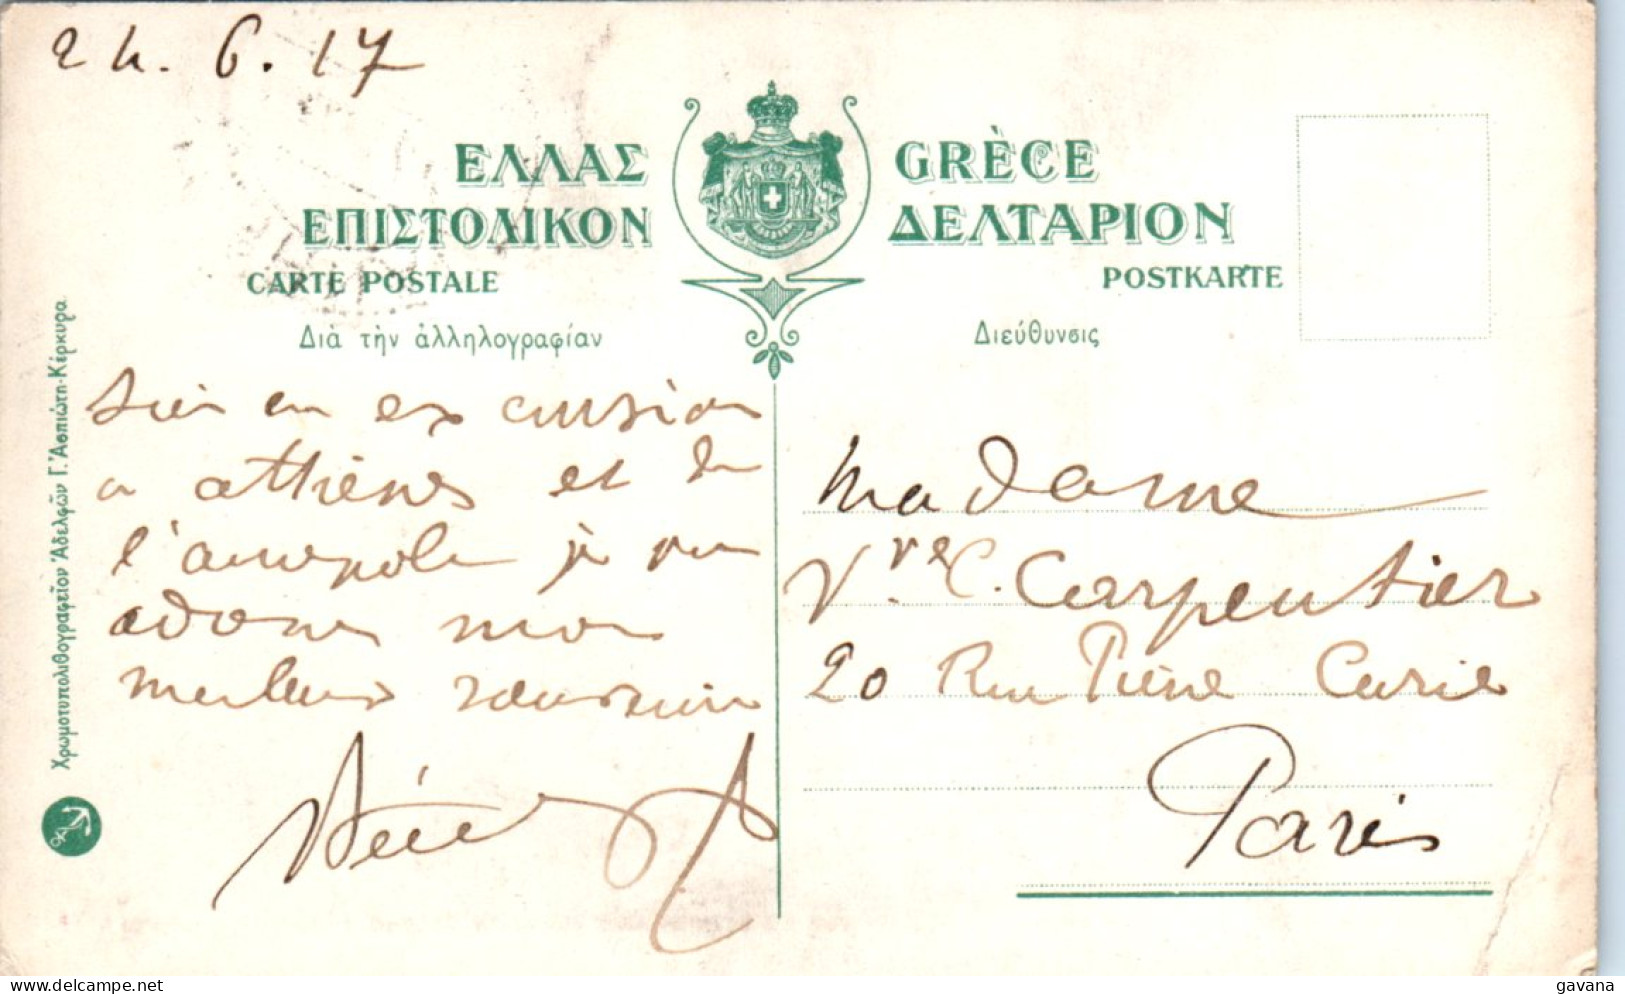 24.6.17
ΕΛΛΑΣ GRÈCE
ΕΠΙΣΤΟΛΙΚΟΝ ΔΕΛΤΑΡΙΟΝ
CARTE POSTALE POSTKARTE
Διὰ τὴν ἀλληλογραφίαν Διεύθυνσις
en excursion
a athènes et de
l'acropole je
meilleurs
Madame
Vve C. Carpentier
20 Rue Pierre Curie
Paris
Χρωμοτυπολιθογραφεῖον Ἀδελφῶν Γ. Ἀσπιώτη-Κέρκυρα
delcampe.net
gavana